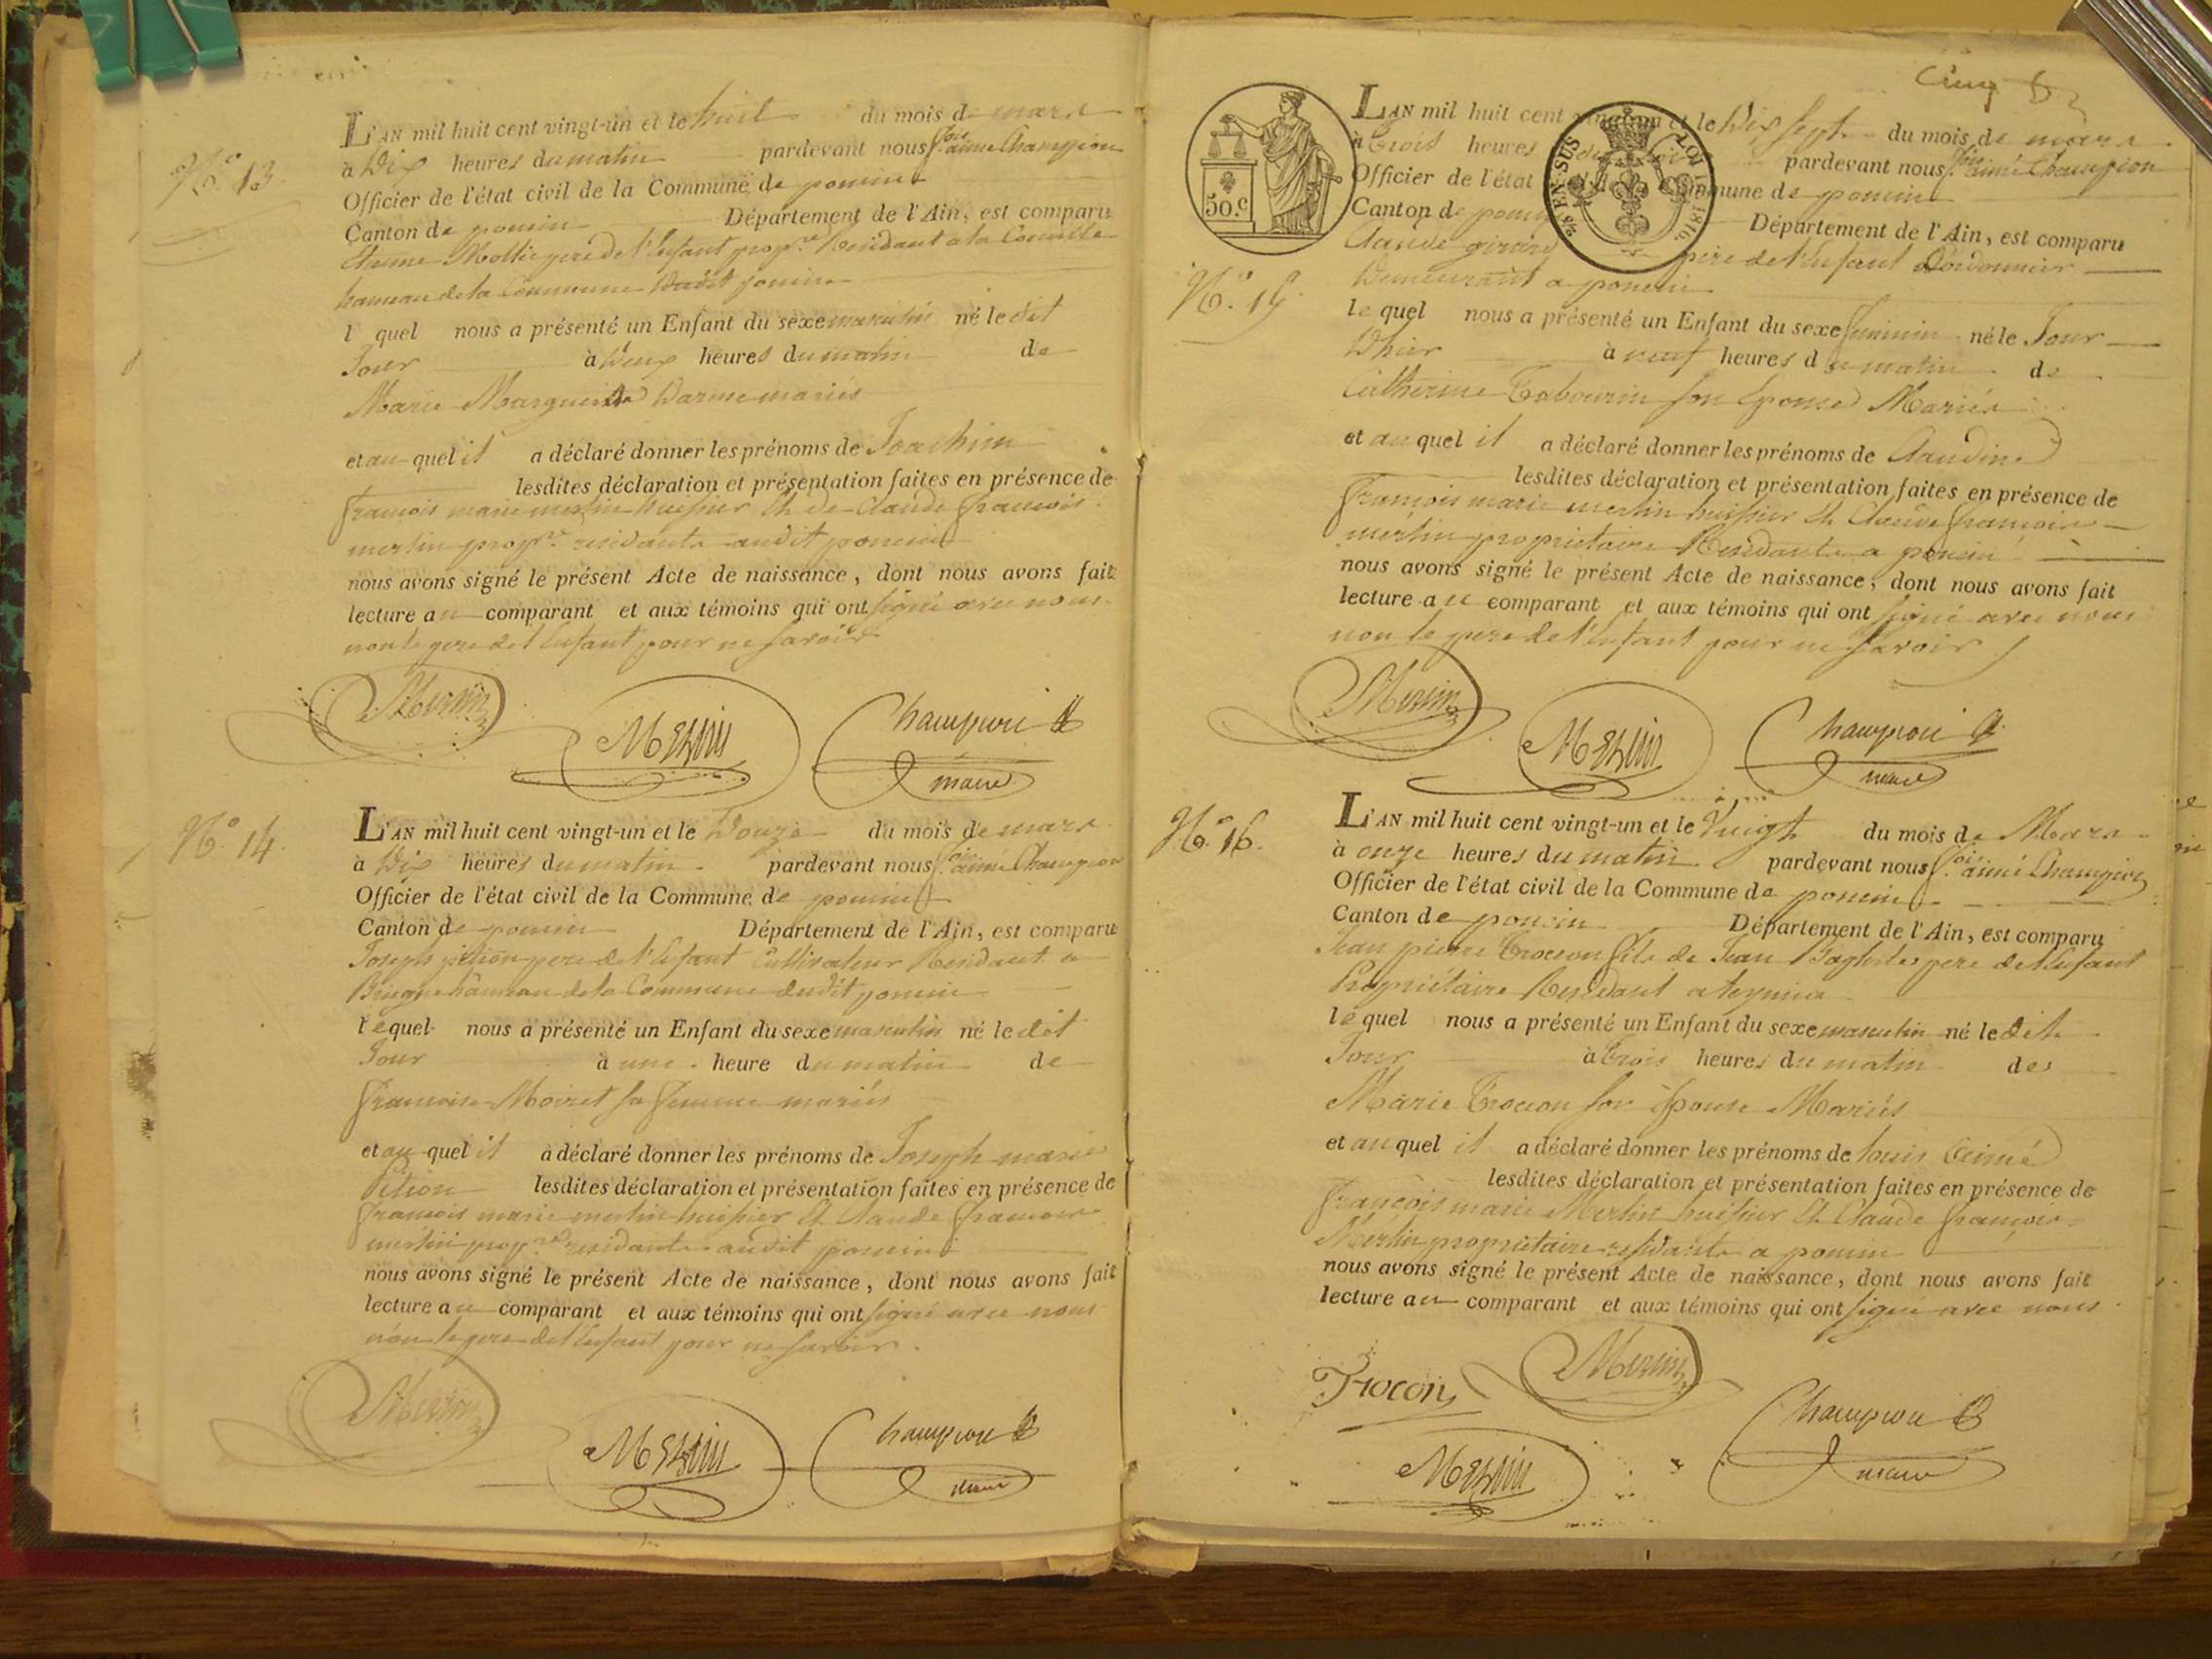 N.o 13.
L'AN mil huit cent vingt-un et le huit du mois de mars
à Dix heures du matin pardevant nous f.ois aimé Champion
Officier de l'état civil de la Commune de poncin
Canton de poncin Département de l'Ain, est comparu
pere de l'Enfant prop.re Residant a la
hameau de la Commune dudit poncin
l quel nous a présenté un Enfant du sexe masculin né le dit
Jour à Deux heures du matin de
Marie Marguerite Darme mariés
et au quel il a déclaré donner les prénoms de Joachim
lesdites déclaration et présentation faites en présence de
françois marie merlin huissier Et de Claude françois
merlin prop.re residants audit poncin
nous avons signé le présent Acte de naissance, dont nous avons fait
lecture au comparant et aux témoins qui ont signé avec nous
non le pere de l'Enfant pour ne savoir
Merlin
Merlin
Champion
maire
N.o 14.
L'AN mil huit cent vingt-un et le Douze du mois de mars
à Dix heures du matin pardevant nous f.ois aimé Champion
Officier de l'état civil de la Commune de poncin
Canton de poncin Département de l'Ain, est comparu
Joseph pition pere de l'Enfant Cultivateur Residant a
hameau de la Commune dudit poncin
lequel nous a présenté un Enfant du sexe masculin né le dit
Jour à une heure du matin de
françoise Moiret sa femme mariés
et au quel il a déclaré donner les prénoms de Joseph marie
Pition lesdites déclaration et présentation faites en présence de
françois marie merlin huissier Et Claude françois
merlin prop.re residants audit poncin
nous avons signé le présent Acte de naissance, dont nous avons fait
lecture au comparant et aux témoins qui ont signé avec nous
non le pere de l'Enfant pour ne savoir.
Merlin
Merlin
Champion
maire
Cinq
50.c
EN SUS
LOI 1816.
N.o 15
L'AN mil huit cent vingt-un et le Dix sept du mois de mars
à trois heures pardevant nous f.ois aimé Champion
Officier de l'état Commune de poncin
Canton de poncin Département de l'Ain, est comparu
Claude girard pere de l'Enfant Cordonnier
Demeurant a poncin
le quel nous a présenté un Enfant du sexe feminin né le Jour
D'hier à neuf heures du matin de
Catherine Tabourin son Epouse Mariés
et au quel il a déclaré donner les prénoms de Claudine
lesdites déclaration et présentation faites en présence de
françois marie merlin huissier Et Claude françois
merlin propriétaire Residants a poncin
nous avons signé le présent Acte de naissance, dont nous avons fait
lecture au comparant et aux témoins qui ont signé avec nous
non le pere de l'Enfant pour ne savoir
Merlin
Merlin
Champion
maire
N.o 16.
L'AN mil huit cent vingt-un et le Vingt du mois de Mars
à onze heures du matin pardevant nous f.ois aimé Champion
Officier de l'état civil de la Commune de poncin
Canton de poncin Département de l'Ain, est comparu
Jean pierre Trocon fils de Jean Baptiste pere de l'Enfant
Propriétaire Residant
le quel nous a présenté un Enfant du sexe masculin né le dit
Jour à trois heures du matin des
Marie Trocon son Epouse Mariés
et au quel il a déclaré donner les prénoms de Louis Aimé
lesdites déclaration et présentation faites en présence de
François marie Merlin huissier Et Claude françois
Merlin propriétaire residants a poncin
nous avons signé le présent Acte de naissance, dont nous avons fait
lecture au comparant et aux témoins qui ont signé avec nous
Trocon
Merlin
Merlin
Champion
maire